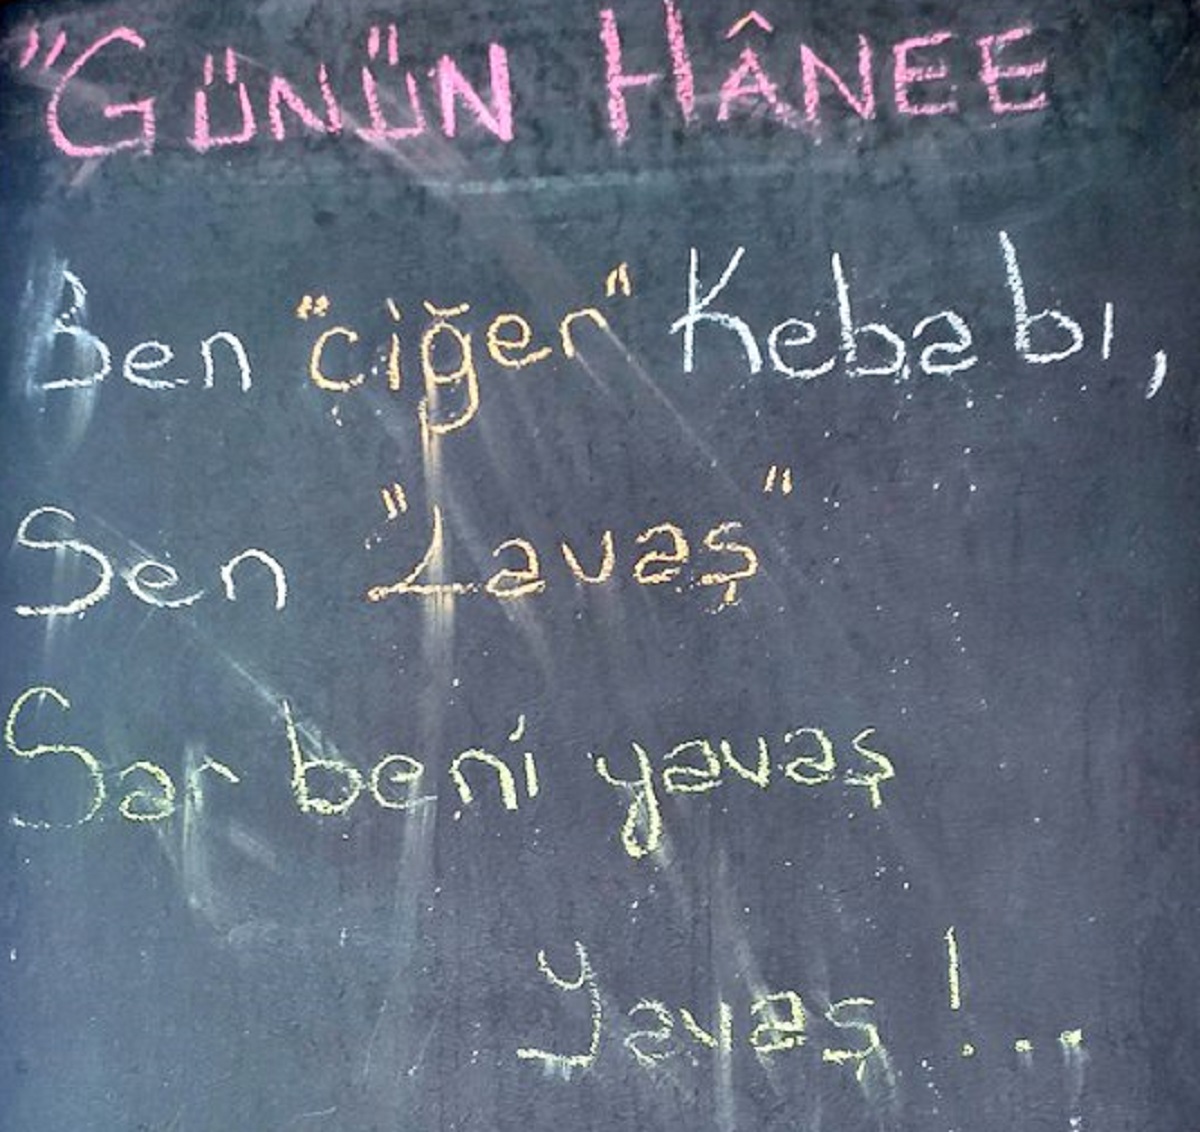 "GÜNÜN HÂNEE
Ben "ciğer" Kebabı,
Sen "Lavaş"
Sar beni yavaş
Yavaş!...